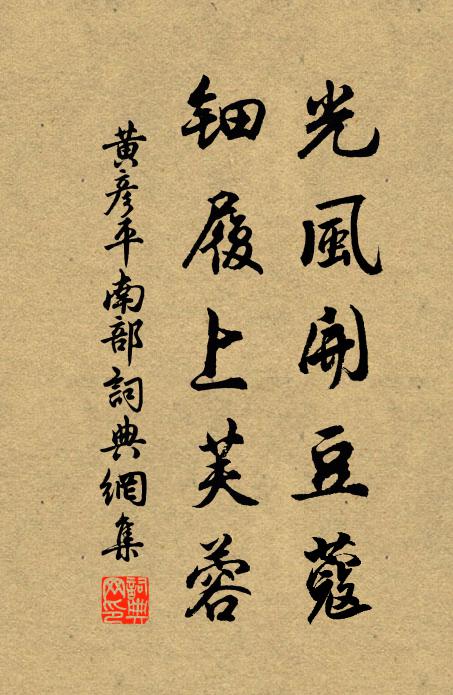 光風開豆蔻
鈿履上芙蓉
黃彥平南部詞典網集
詞典網印